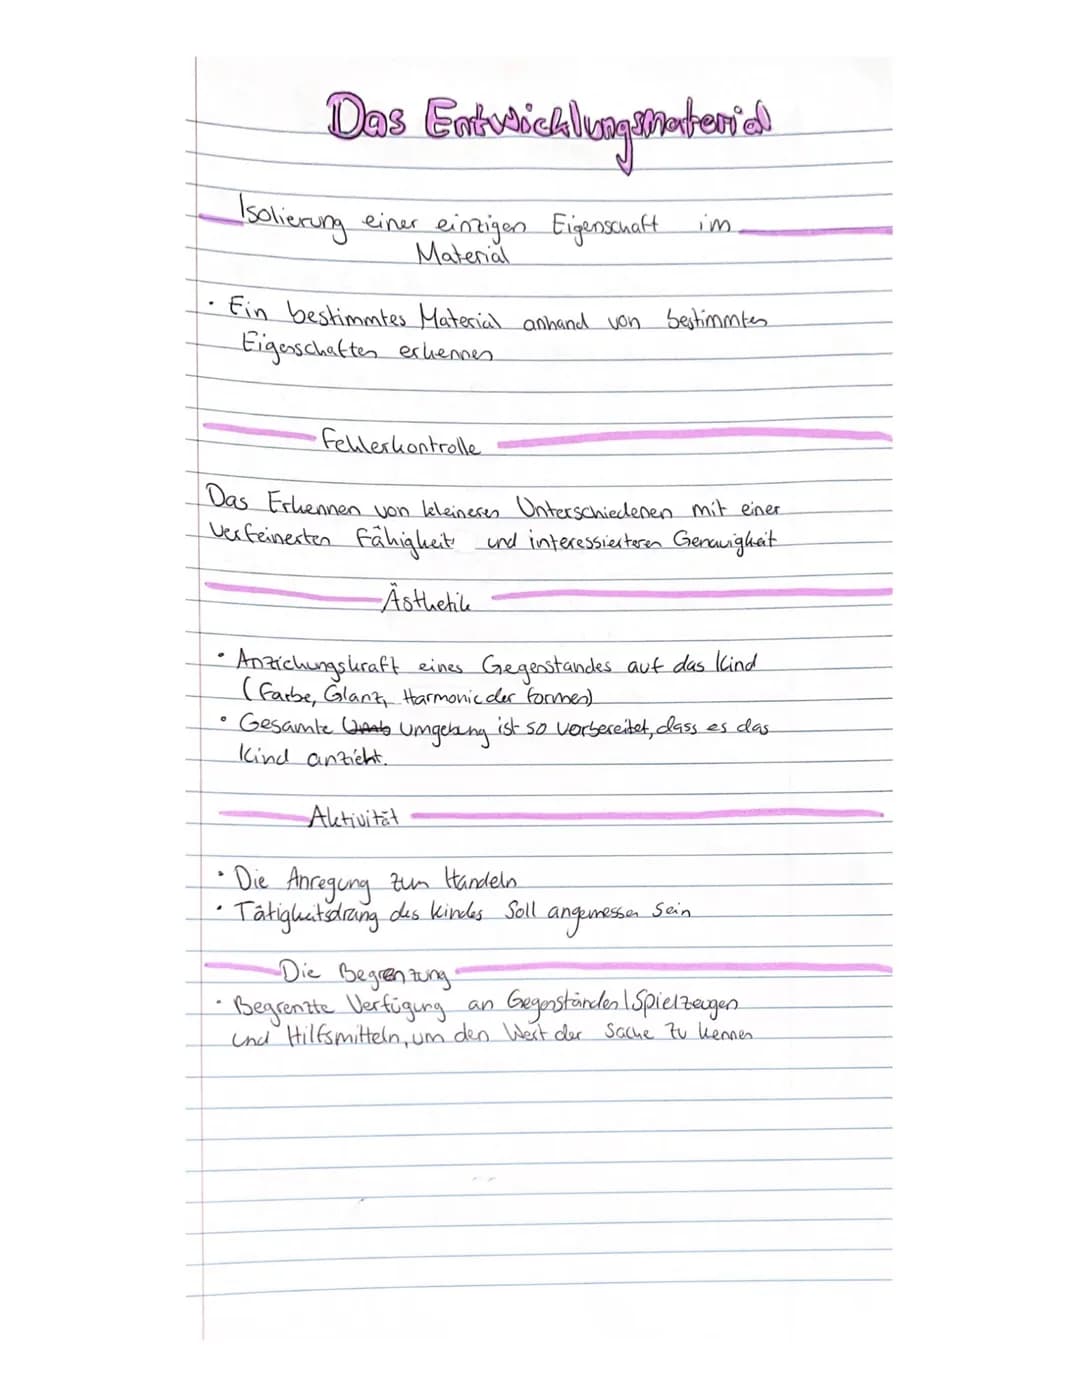 Das Entwicklungsmaterial
Isolierung einer einzigen Eigenschaft im
Material
• Ein bestimmtes Material anhand von bestimmten
Eigenschaften erkennen
Fehlerkontrolle
Das Erkennen von kleineren Unterschiedenen mit einer
verfeinerten Fähigkeit und interessierteren Genauigkeit
Ästhetik
• Anziehungskraft eines Gegenstandes auf das Kind
(Farbe, Glanz, Harmonie der Formen)
• Gesamte Umgebung ist so vorbereitet, dass es das
Kind anzieht.
Aktivität
• Die Anregung zum Handeln
• Tätigkeitsdrang des Kindes Soll angemessen Sein
Die Begrenzung
• Begrenzte Verfügung an Gegenständen \ Spielzeugen
und Hilfsmitteln, um den Wert der Sache zu kennen